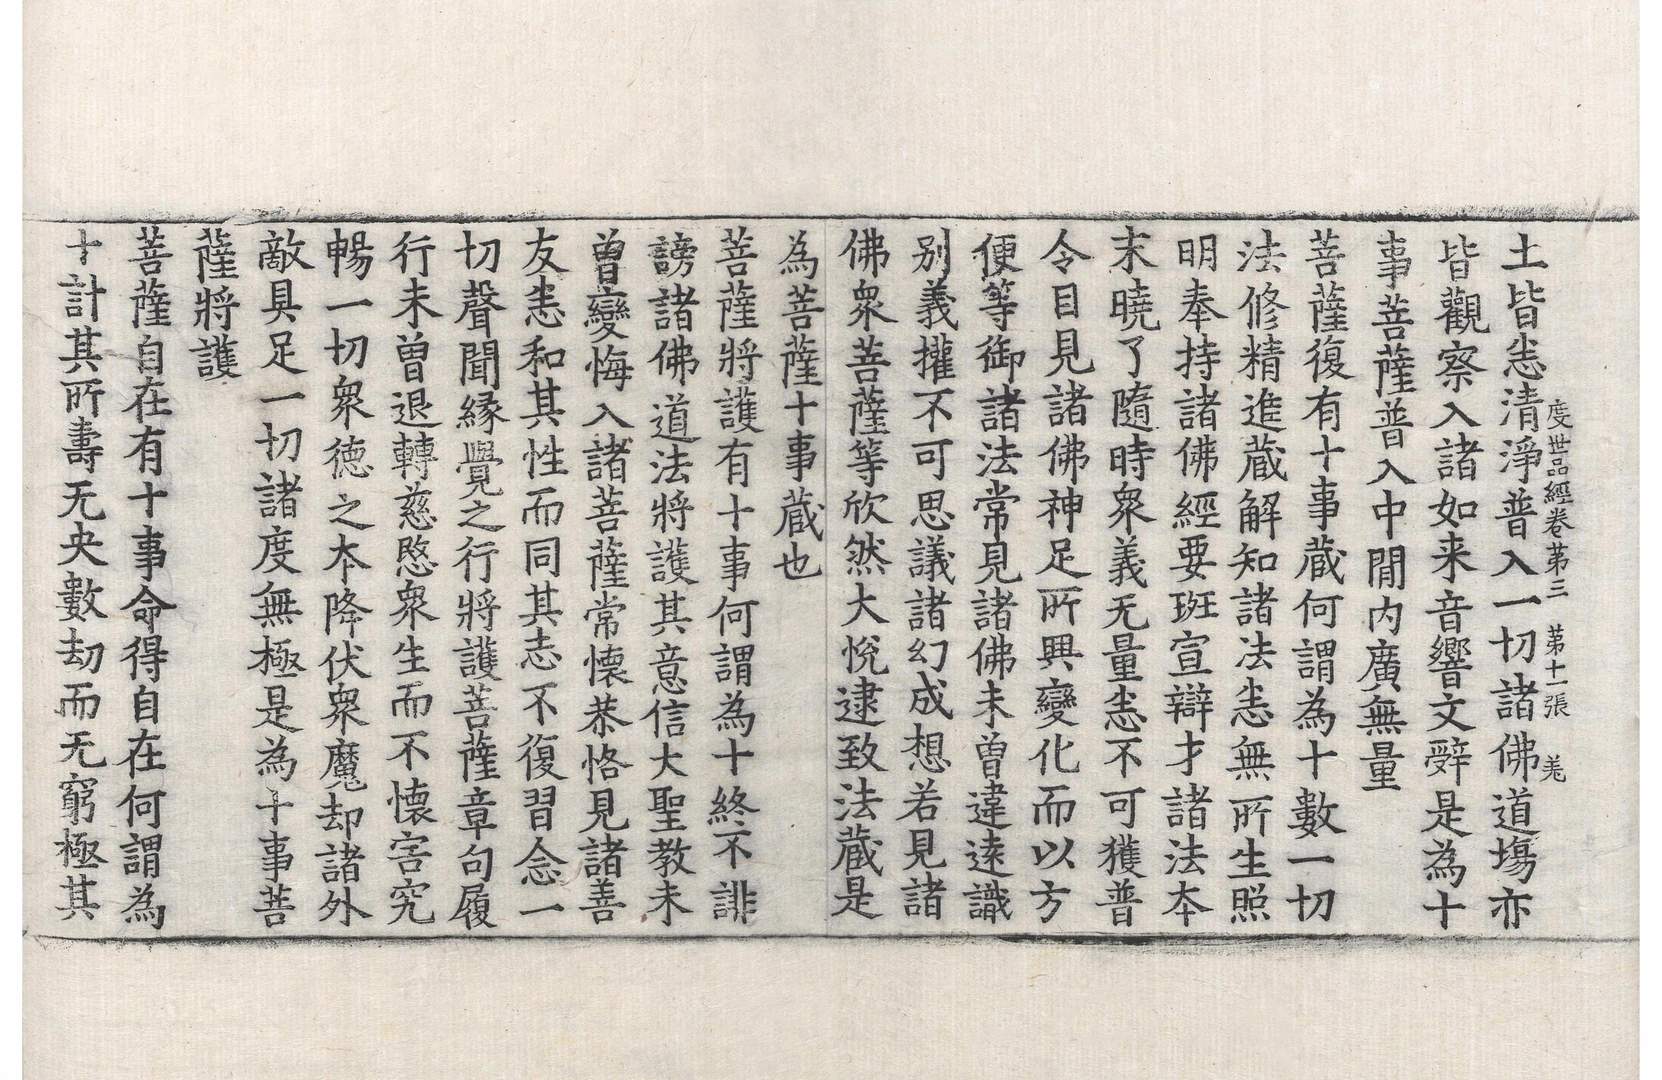 度世品經卷第三　第十一張　羗
土皆恚清淨普入一切諸佛道塲亦
皆觀察入諸如来音響文辭是為十
事菩薩普入中閒内廣無量
菩薩復有十事蔵何謂為十數一切
法修精進蔵解知諸法恚無所生照
明奉持諸佛經要班宣辯才諸法夲
末曉了隨時衆義无量恚不可獲普
令目見諸佛神足所興變化而以方
便等御諸法常見諸佛未曾違逺識
别義攉不可思議諸幻成想若見諸
佛衆菩薩等欣然大悅逮致法蔵是
為菩薩十事蔵也
菩薩將護有十事何謂為十終不誹
謗諸佛道法將護其意信大聖教未
曽變悔入諸菩薩常懷恭恪見諸善
友恚和其性而同其志不復習念一
切聲聞縁覺之行將護菩薩章句履
行未曽退轉慈愍衆生而不懷害究
暢一切衆徳之夲降伏衆魔却諸外
敵具足一切諸度無極是為十事菩
薩將護
菩薩自在有十事命得自在何謂為
十計其所壽无央數劫而无窮極其